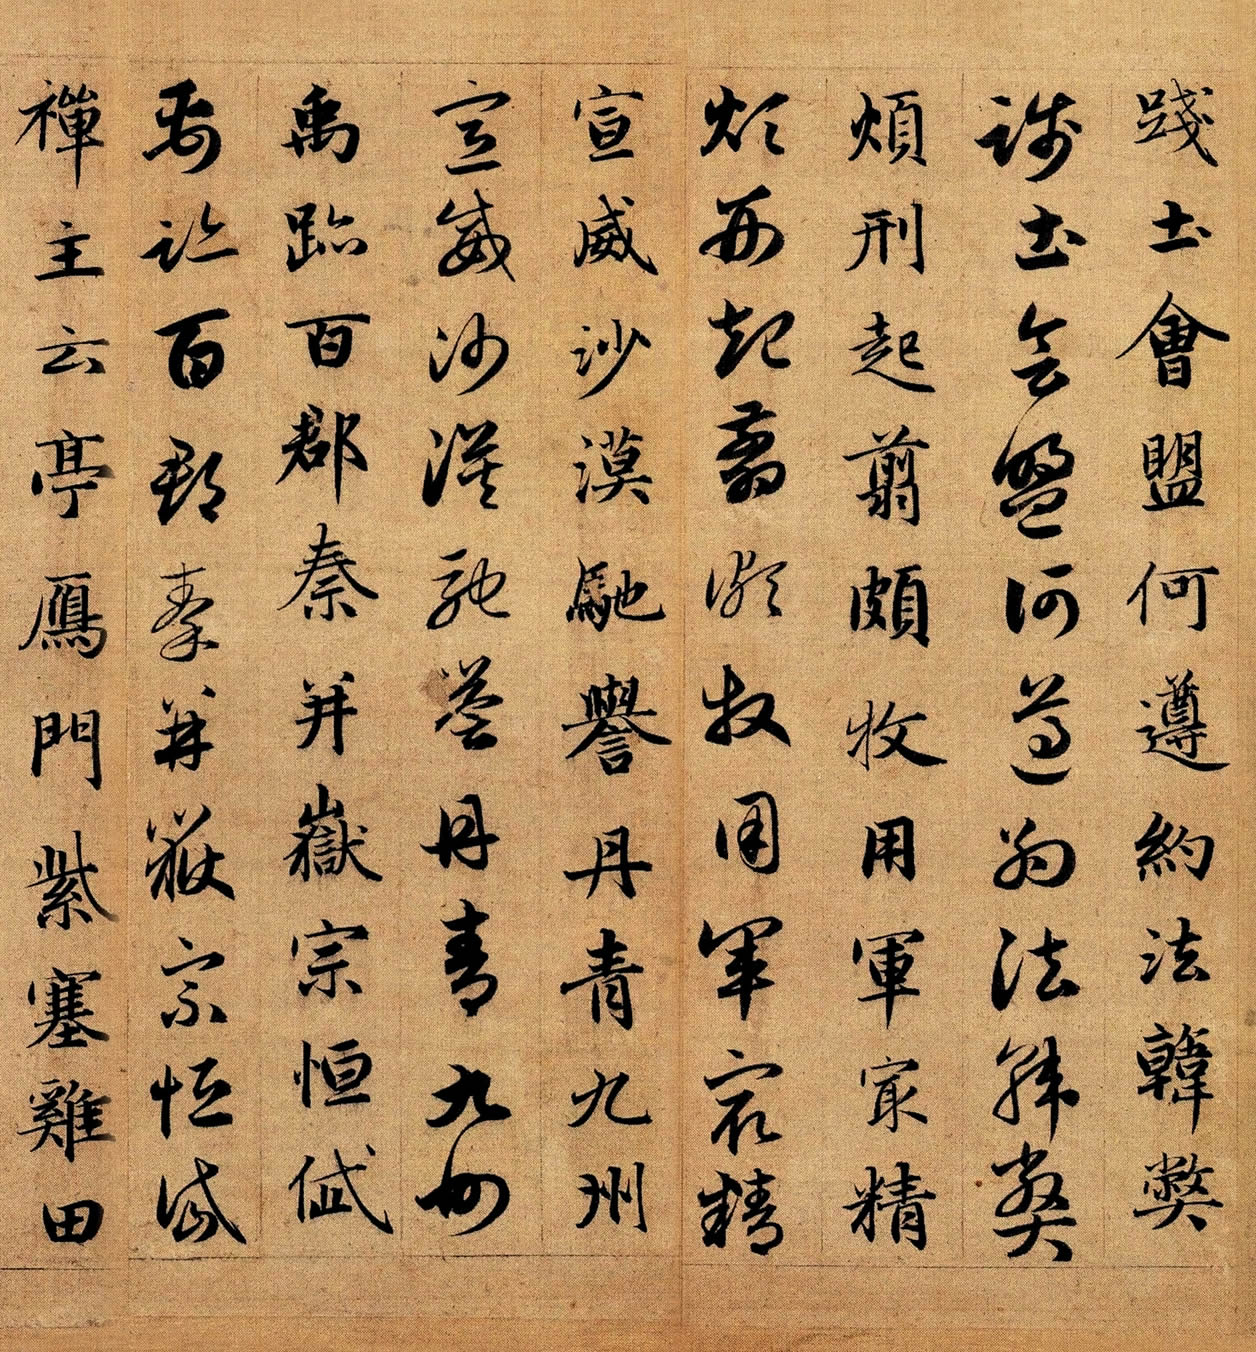 踐土會盟何遵約法韓獘
踐土會盟何遵約法韓獘
煩刑起翦頗牧用軍㝡精
煩刑起翦頗牧用軍㝡精
宣威沙漠馳譽丹青九州
宣威沙漠馳譽丹青九州
禹跡百郡秦并嶽宗恒岱
禹跡百郡秦并嶽宗恒岱
禪主云亭鴈門紫塞雞田